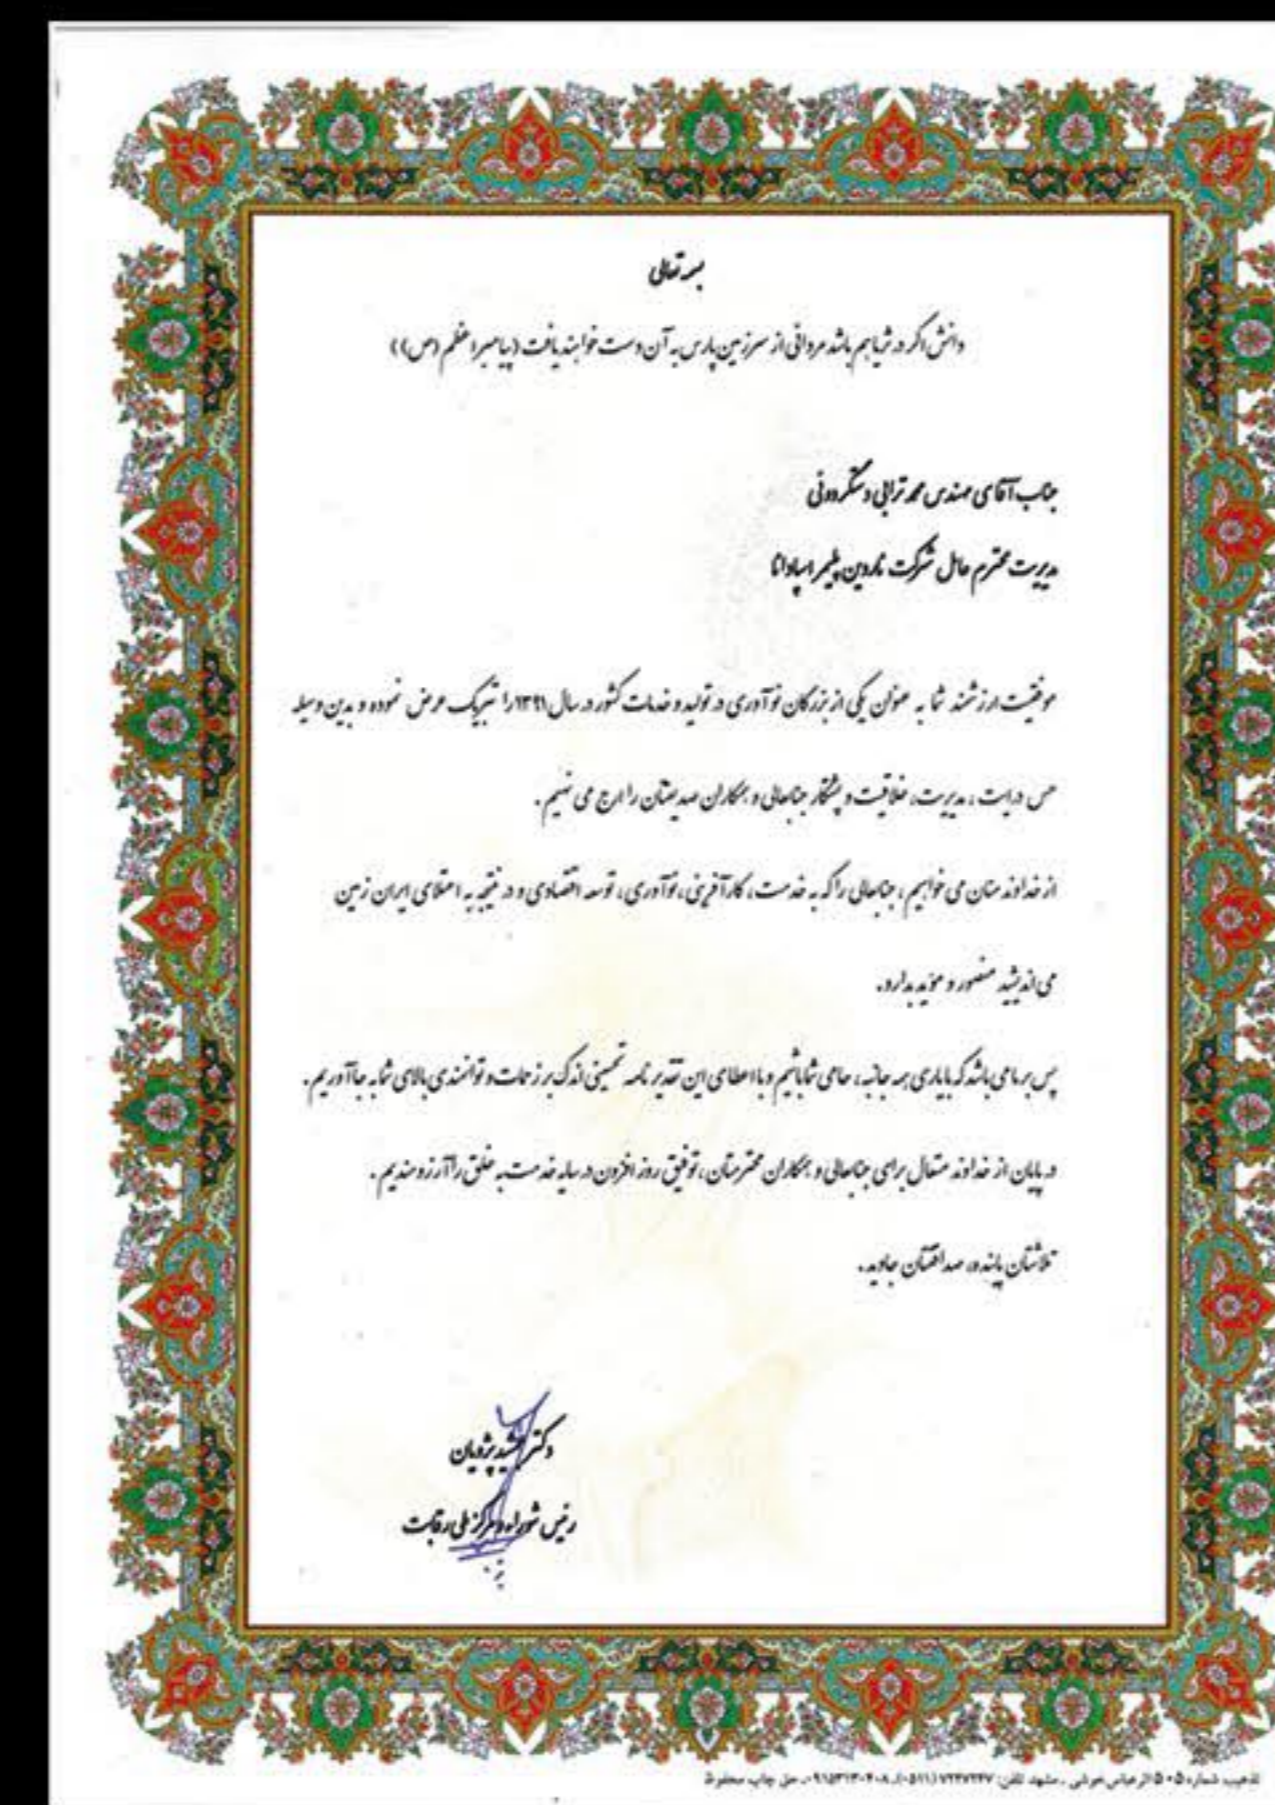 بسمه تعالی
دانش اگر در ثریا هم باشد مردانی از سرزمین پارس به آن دست خواهند یافت (پیامبر اعظم (ص))
جناب آقای مهندس محمد ترابی دستگردوئی
مدیریت محترم عامل شرکت ناردین پلیمر اسپادانا
موفقیت ارزشمند شما به عنوان یکی از بزرگان نوآوری در تولید و خدمات کشور در سال ۱۳۹۱ را تبریک عرض نموده و بدین وسیله
حس درایت، مدیریت، خلاقیت و پشتکار جنابعالی و همکاران صدیقتان را ارج می نهیم.
از خداوند منان می خواهیم، جنابعالی را که به خدمت، کارآفرینی، نوآوری، توسعه اقتصادی و در نتیجه به اعتلای ایران زمین
می اندیشید منصور و مؤید بدارد.
پس بر ما می باشد که با یاری همه جانبه، حامی شما باشیم و با اعطای این تقدیر نامه تحسینی اندک بر زحمات و توانمندی بالای شما به جا آوریم.
در پایان از خداوند متعال برای جنابعالی و همکاران محترمتان، توفیق روز افزون در سایه خدمت به خلق را آرزومندیم.
تلاشتان پاینده، صداقتتان جاوید.
دکتر جمشید پژویان
رئیس شورا و مرکز ملی رقابت
تذهیب شماره ۵۰۵ اثر عباس خوشی - مشهد تلفن: ۷۲۴۷۲۴۷ (۰۵۱۱) - ۰۹۱۵۳۱۳۰۴۰۸ حق چاپ محفوظ